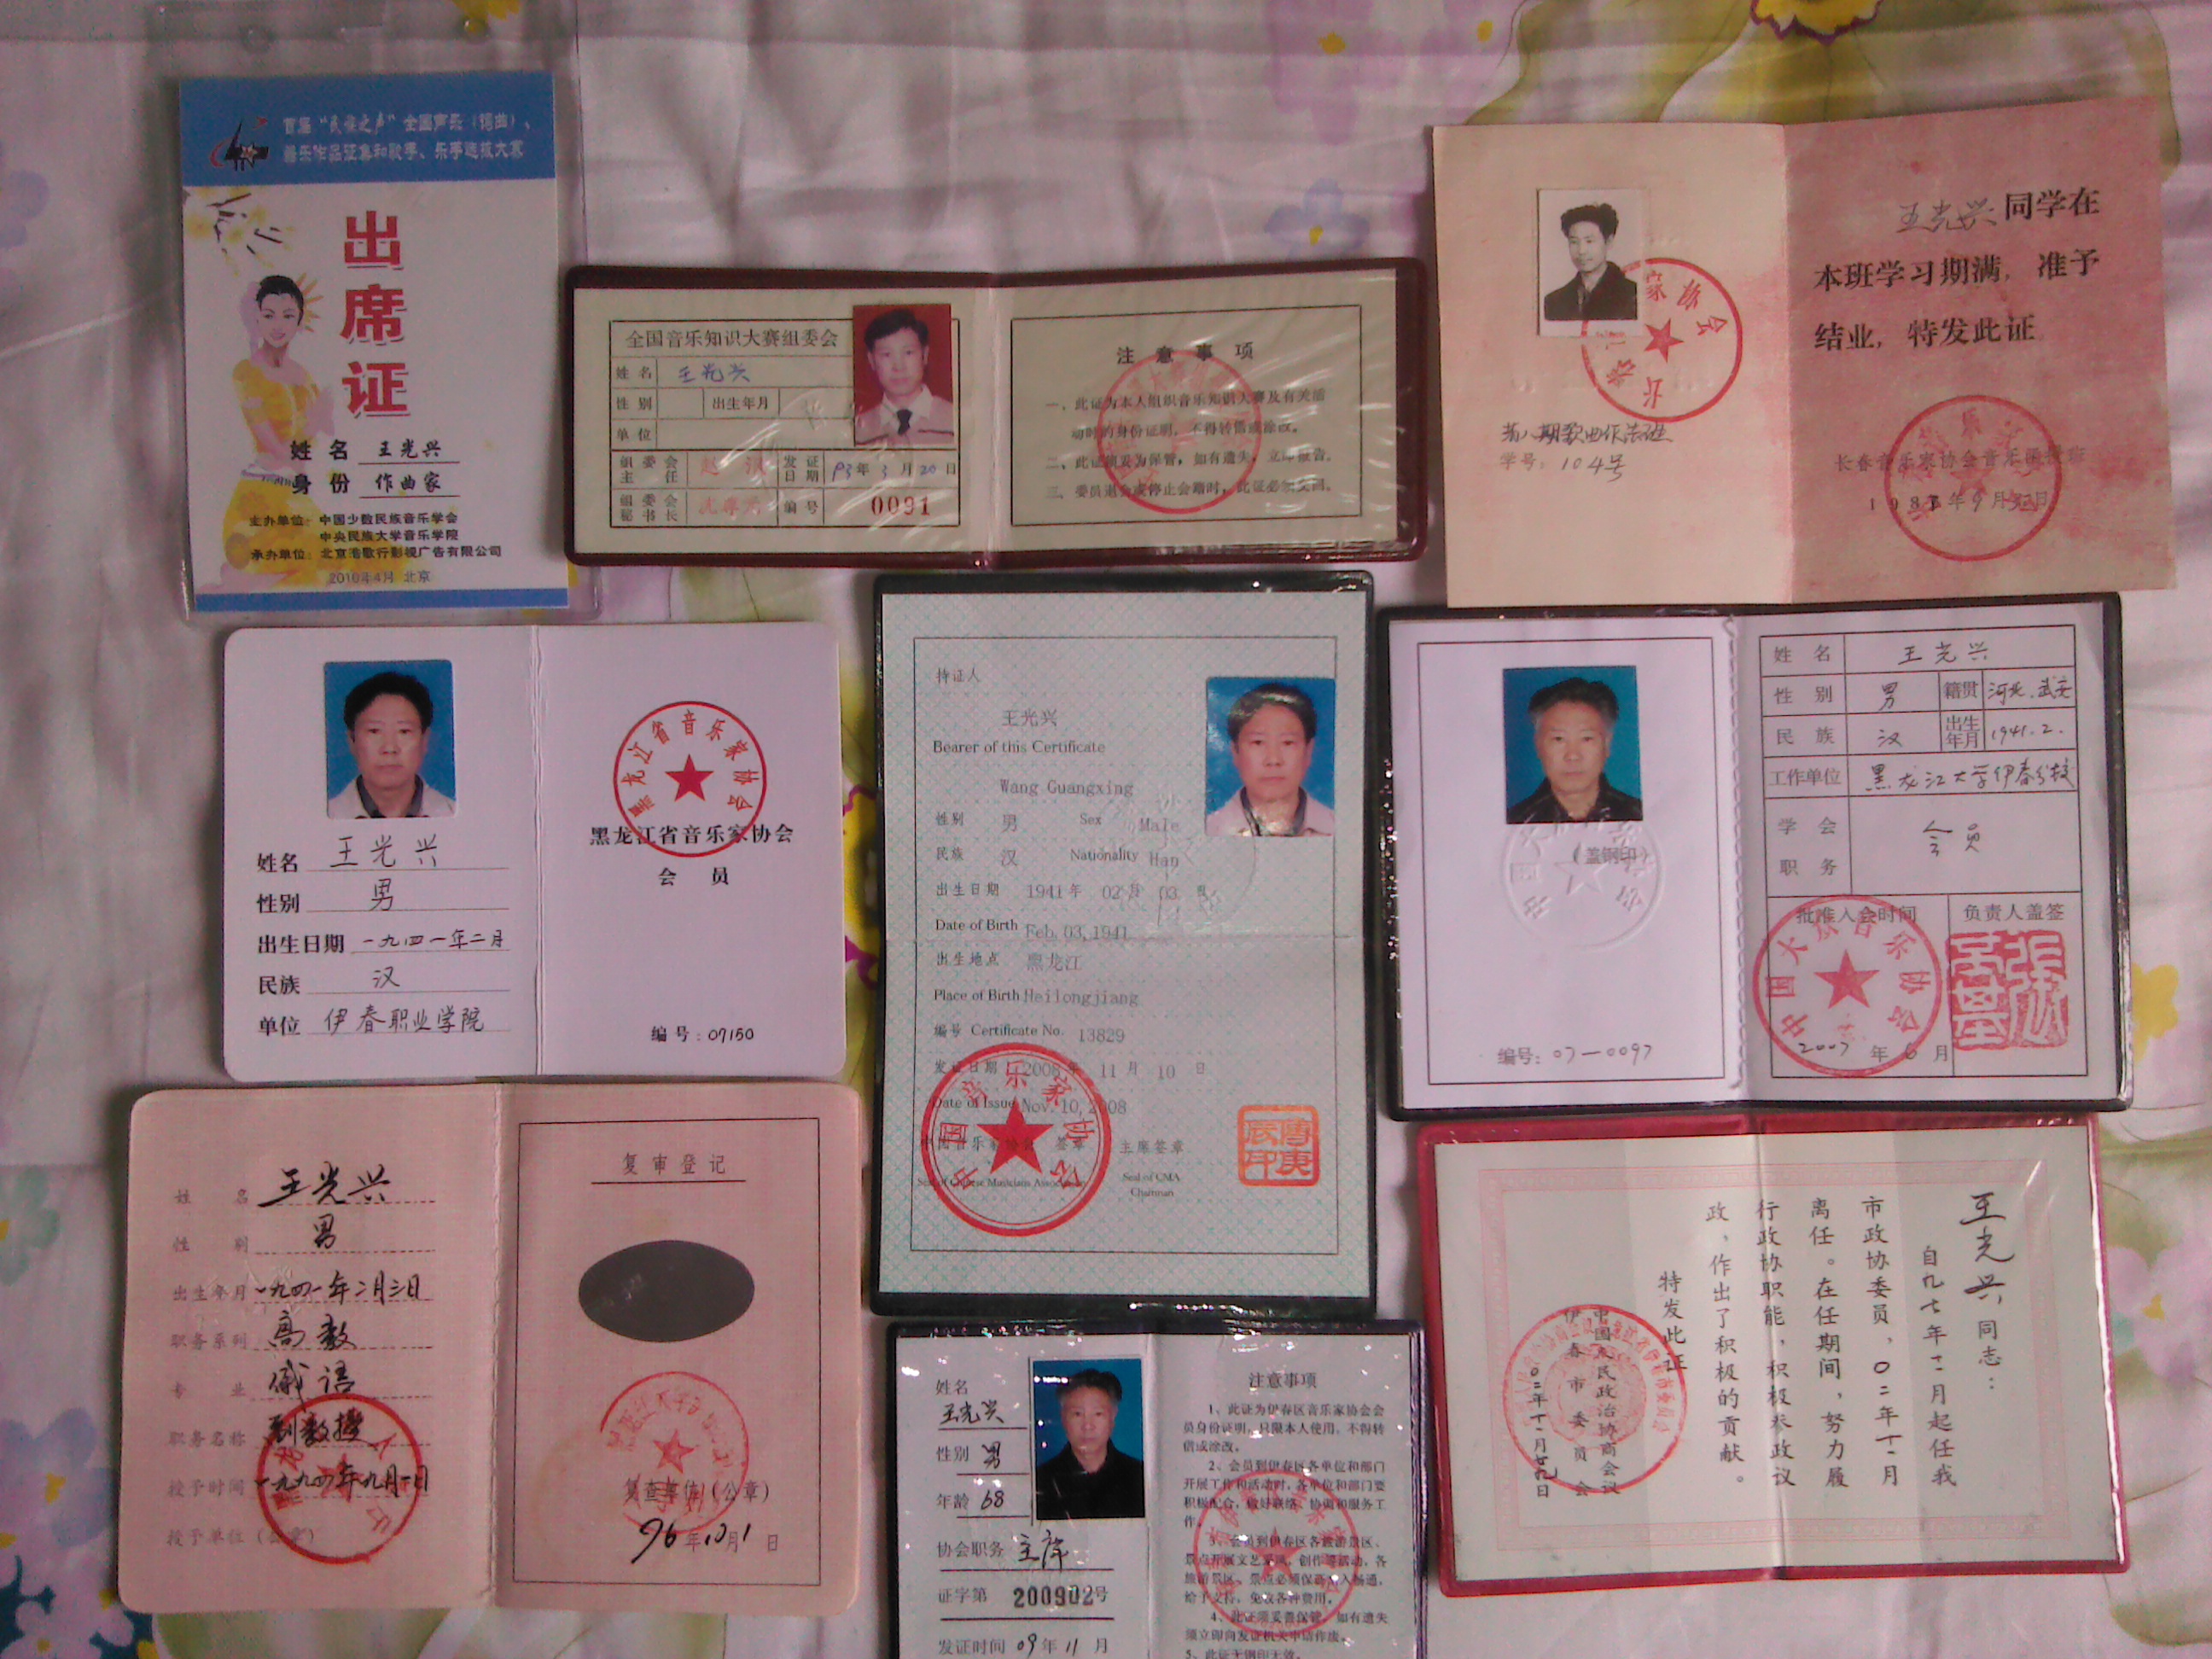 首届“民族之声”全国声乐(词曲)、
器乐作品征集和歌手、乐手选拔大赛
出席证
姓 名 王光兴
身 份 作曲家
主办单位：中国少数民族音乐学会
中央民族大学音乐学院
承办单位：北京浩歌行影视广告有限公司
2010年4月 北京
全国音乐知识大赛组委会
姓 名 王光兴
性 别 出生年月
单 位
组委会主任 赵沨 发证日期 93年3月20日
组委会秘书长 编号 0091
注 意 事 项
一、此证为本人组织音乐知识大赛及有关活
动时的身份证明，不得转借或涂改。
二、此证须妥为保管，如有遗失，立即报告。
三、委员退会或停止会籍时，此证必须交回。
第八期歌曲作法班
学号：104号
王光兴同学在
本班学习期满，准予
结业，特发此证
长春音乐家协会音乐函授班
姓名 王光兴
性别 男
出生日期 一九四一年二月
民族 汉
单位 伊春职业学院
黑龙江省音乐家协会
黑龙江省音乐家协会
会 员
编号：07150
持证人
王光兴
Bearer of this Certificate
Wang Guangxing
性别 男 Sex Male
民族 汉 Nationality Han
出生日期 1941年 02月 03 日
Date of Birth Feb. 03, 1941
出生地点 黑龙江
Place of Birth Heilongjiang
编号 Certificate No. 13829
发证日期 2008年 11月 10日
Date of Issue Nov. 10, 2008
中国音乐家协会 签章 主席签章
Seal of Chinese Musicians Association Seal of CMA
Chairman
中国音乐家协会
傅庚辰印
(盖钢印)
编号：07—0097
姓 名 王光兴
性 别 男 籍贯 河北.武安
民 族 汉 出生年月 1941.2.
工作单位 黑龙江大学伊春分校
学会职务 会员
批准入会时间 负责人盖签
中国大众音乐协会
2007年6月
姓 名 王光兴
性 别 男
出生年月 一九四一年二月三日
职务系列 高教
专 业 俄语
职务名称 副教授
授予时间 一九九四年九月一日
授予单位（公章）
复审登记
复查单位（公章）
96年10月1日
姓名 王光兴
性别 男
年龄 68
协会职务 主席
证字第 200902号
发证时间 09年11月
注意事项
1、此证为伊春区音乐家协会会
员身份证明，只限本人使用，不得转
借或涂改。
2、会员到伊春区各单位和部门
开展工作和活动时，各单位和部门要
积极配合，做好联络、协调和服务工
作。
3、会员到伊春区各旅游景区、
景点开展文艺采风、创作等活动，各
旅游景区、景点必须保证出入畅通，
给予支持，免收各种费用。
4、此证须妥善保管，如有遗失
须立即向发证机关申请作废。
5、此证无钢印无效。
王光兴同志：
自九七年十一月起任我
市政协委员，〇二年十一月
离任。在任期间，努力履
行政协职能，积极参政议
政，作出了积极的贡献。
特发此证
中国人民政治协商会议
伊春市委员会